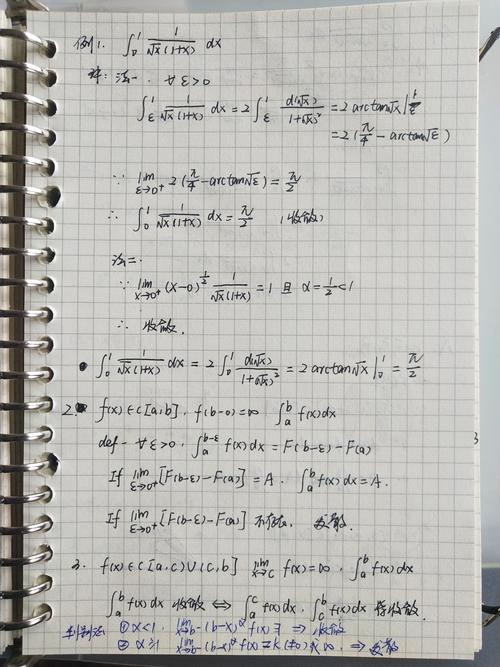 例1. ∫₀¹ 1/(√x(1+x)) dx
解: 法一. ∀ε>0
∫_ε¹ 1/(√x(1+x)) dx = 2∫_ε¹ d(√x)/(1+(√x)²) = 2 arctan√x |_ε¹
= 2(π/4 - arctan√ε)
∵ lim_{ε→0⁺} 2(π/4 - arctan√ε) = π/2
∴ ∫₀¹ 1/(√x(1+x)) dx = π/2 (收敛)
法二.
∵ lim_{x→0⁺} (x-0)^{1/2} 1/(√x(1+x)) = 1 且 α = 1/2 < 1
∴ 收敛.
∫₀¹ 1/(√x(1+x)) dx = 2∫₀¹ d(√x)/(1+(√x)²) = 2 arctan√x |₀¹ = π/2
2. f(x)∈C[a,b), f(b-0)=∞ ∫_a^b f(x)dx
def - ∀ε>0. ∫_a^{b-ε} f(x)dx = F(b-ε) - F(a)
If lim_{ε→0⁺} [F(b-ε) - F(a)] = A. ∫_a^b f(x)dx = A.
If lim_{ε→0⁺} [F(b-ε) - F(a)] 不存在, 发散.
3. f(x)∈C[a,c)∪(c,b] lim_{x→c} f(x) = ∞. ∫_a^b f(x)dx
∫_a^b f(x)dx 收敛 ⇔ ∫_a^c f(x)dx. ∫_c^b f(x)dx 皆收敛.
判别法 ① α<1. lim_{x→b⁻} (b-x)^α f(x) ∃ ⇒ 收敛
② α≥1 lim_{x→b⁻} (b-x)^α f(x) = k(≠0) 或 ∞. ⇒ 发散